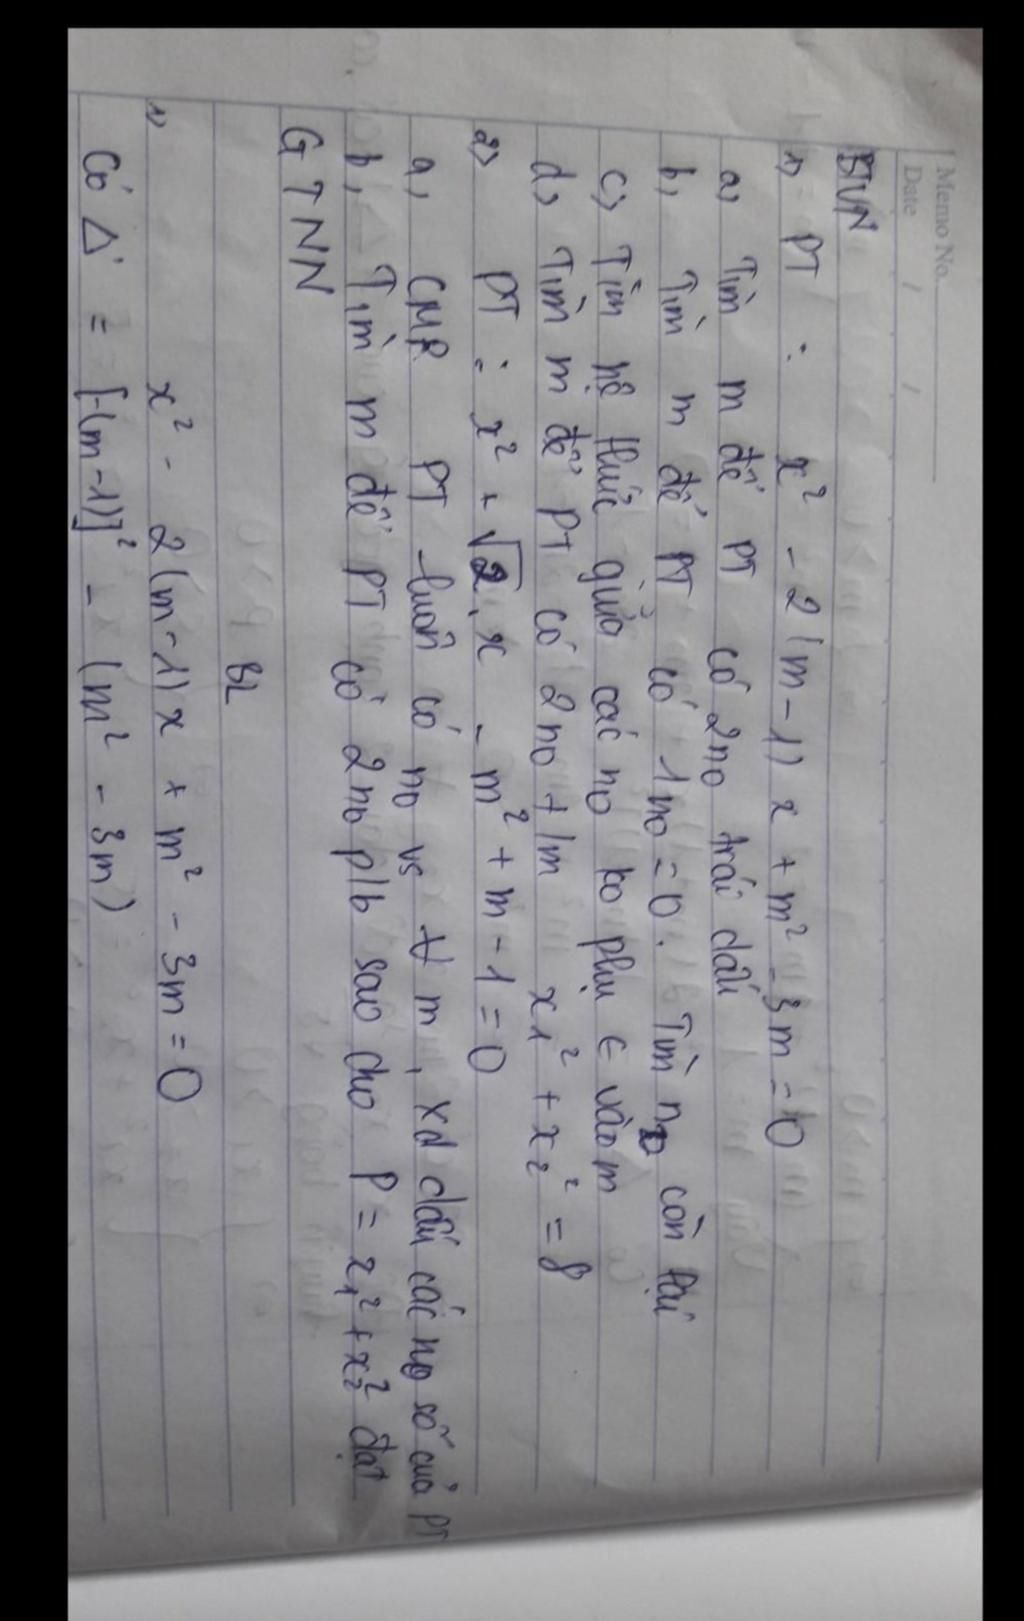 Memo No.
Date / /
BTVN
1) PT : x² - 2(m-1)x + m² - 3m = 0
a) Tìm m để PT có 2 no trái dấu
b, Tìm m để PT có 1 no = 0. Tìm no còn lại
c) Tìm hệ thức giữa các no ko phụ ∈ vào m
d) Tìm m để PT có 2 no t/m x₁² + x₂² = 8
2) PT : x² + √2.x - m² + m - 1 = 0
a, CMR PT luôn có no vs ∀ m, xđ dấu các no số của PT
b, Tìm m để PT có 2 no p/b sao cho P = x₁² + x₂² đạt
GTNN
BL
1) x² - 2(m-1)x + m² - 3m = 0
Có Δ' = [-(m-1)]² - (m² - 3m)